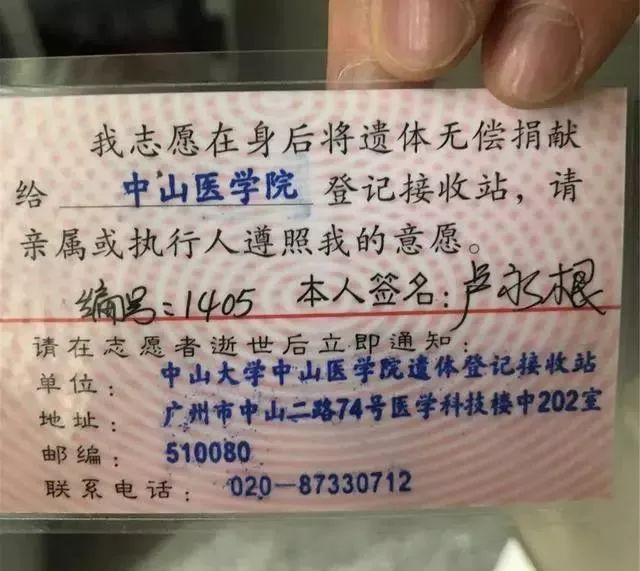 我志愿在身后将遗体无偿捐献
给 中山医学院 登记接收站，请
亲属或执行人遵照我的意愿。
编号：1405 本人签名：卢永根
请在志愿者逝世后立即通知：
单位：中山大学中山医学院遗体登记接收站
地址：广州市中山二路74号医学科技楼中202室
邮编：510080
联系电话：020-87330712